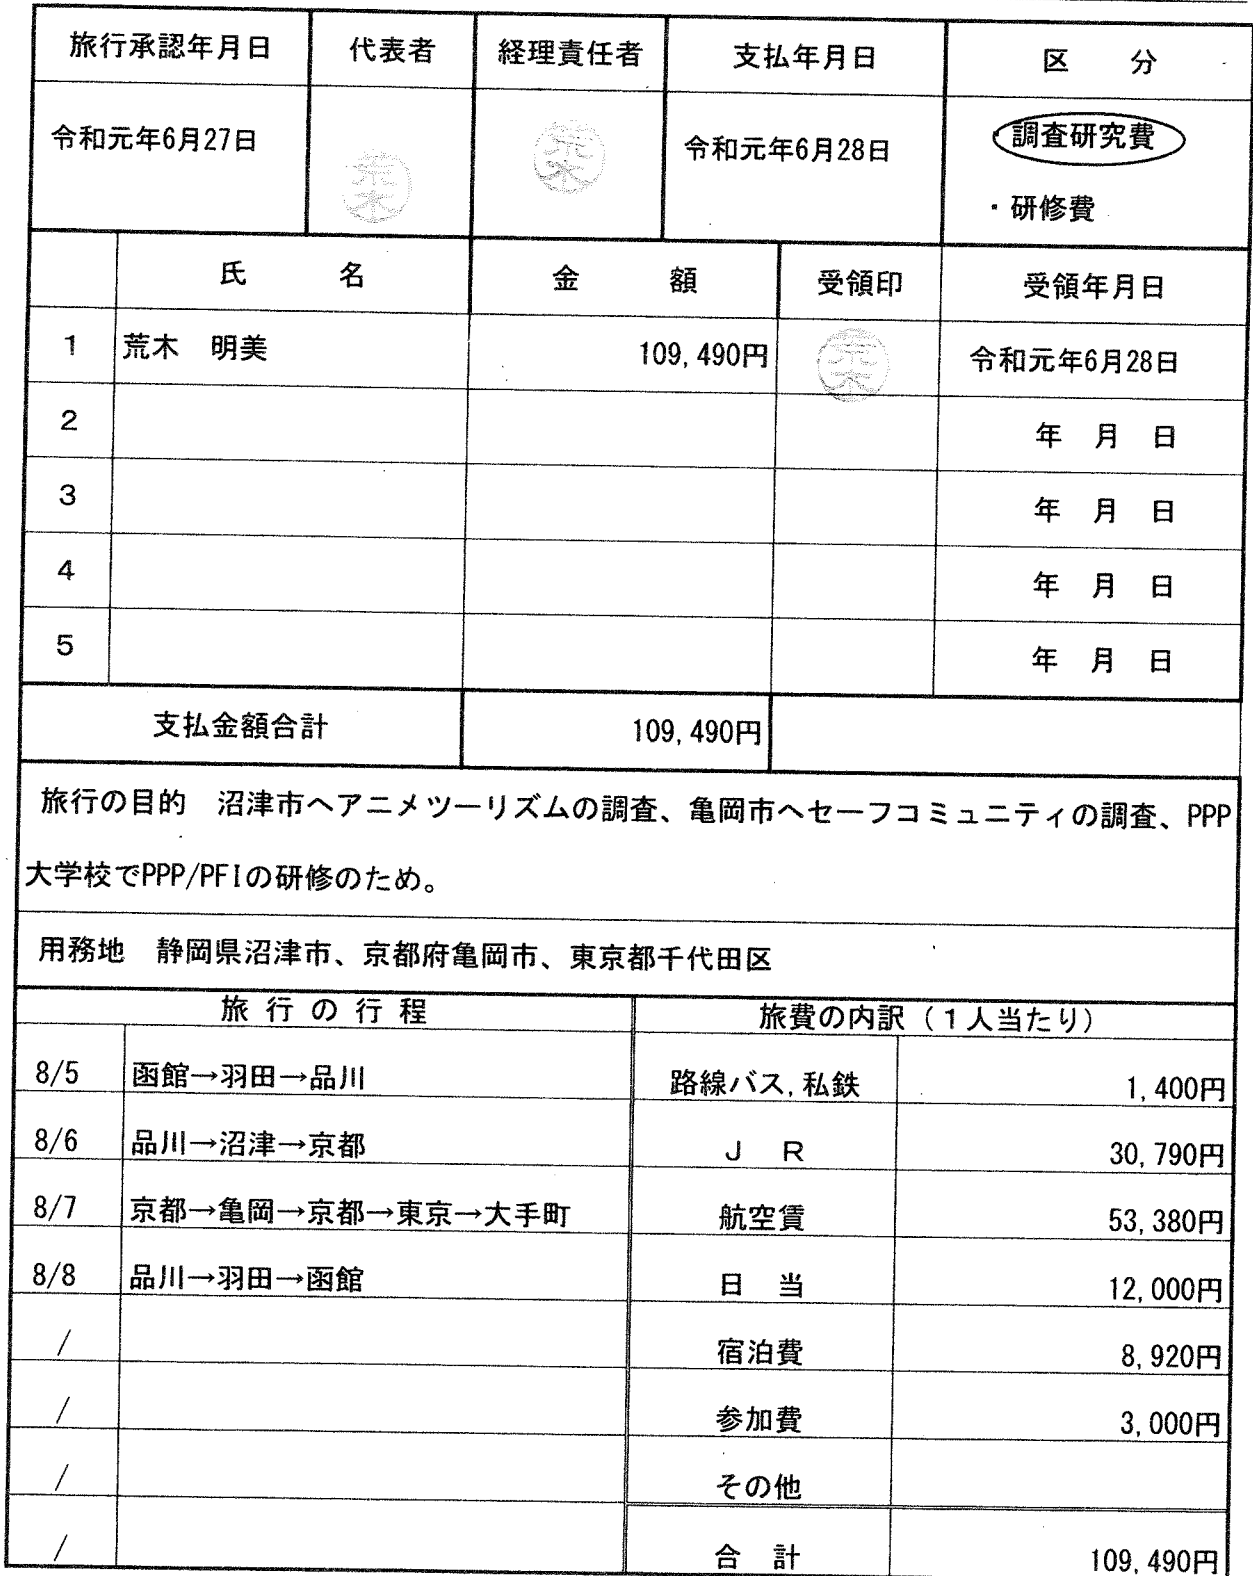 旅行承認年月日 代表者 経理責任者 支払年月日 区 分
令和元年6月27日 荒木 荒木 令和元年6月28日 ・調査研究費
・研修費
氏 名 金 額 受領印 受領年月日
1 荒木 明美 109,490円 荒木 令和元年6月28日
2 年 月 日
3 年 月 日
4 年 月 日
5 年 月 日
支払金額合計 109,490円
旅行の目的 沼津市へアニメツーリズムの調査、亀岡市へセーフコミュニティの調査、PPP
大学校でPPP/PFIの研修のため。
用務地 静岡県沼津市、京都府亀岡市、東京都千代田区
旅 行 の 行 程 旅費の内訳(1人当たり)
8/5 函館→羽田→品川 路線バス,私鉄 1,400円
8/6 品川→沼津→京都 J R 30,790円
8/7 京都→亀岡→京都→東京→大手町 航空賃 53,380円
8/8 品川→羽田→函館 日 当 12,000円
/ 宿泊費 8,920円
/ 参加費 3,000円
/ その他
/ 合 計 109,490円